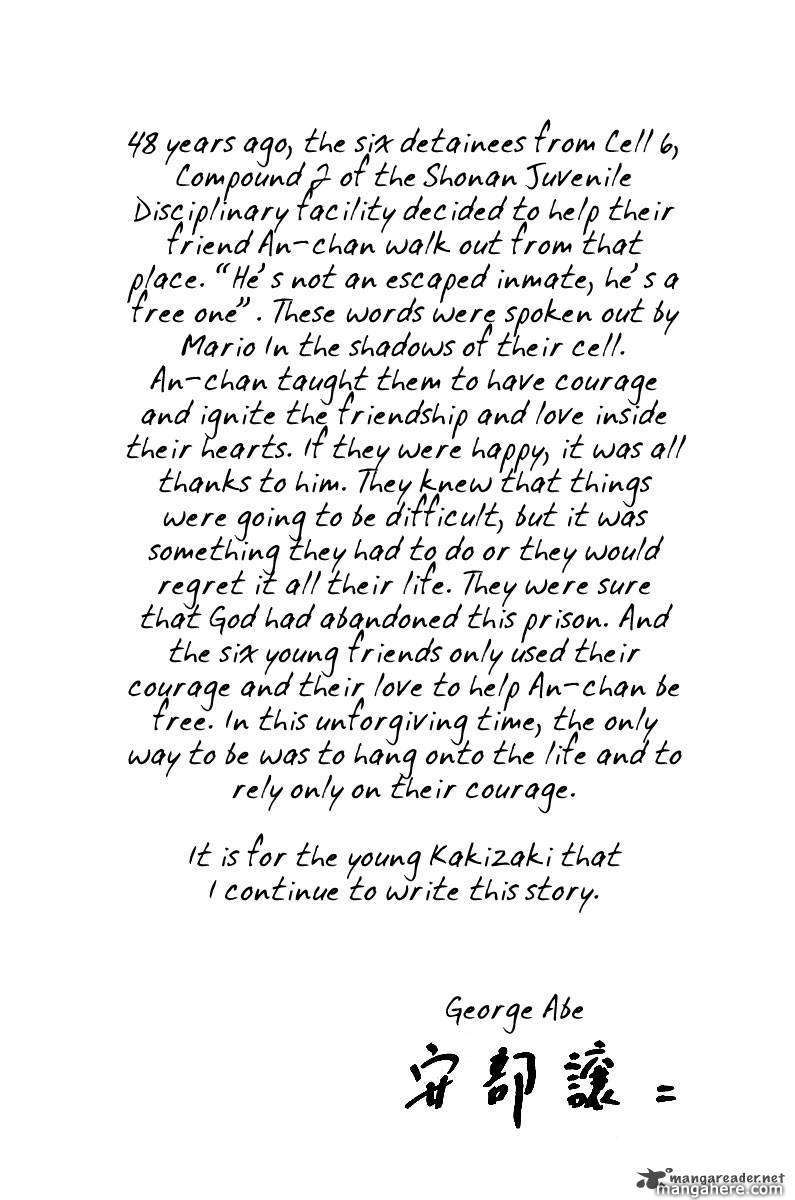 48 years ago, the six detainees from Cell 6,
Compound 2 of the Shonan Juvenile
Disciplinary facility decided to help their
friend An-chan walk out from that
place. "He's not an escaped inmate, he's a
free one". These words were spoken out by
Mario In the shadows of their cell.
An-chan taught them to have courage
and ignite the friendship and love inside
their hearts. If they were happy, it was all
thanks to him. They knew that things
were going to be difficult, but it was
something they had to do or they would
regret it all their life. They were sure
that God had abandoned this prison. And
the six young friends only used their
courage and their love to help An-chan be
free. In this unforgiving time, the only
way to be was to hang onto the life and to
rely only on their courage.
It is for the young Kakizaki that
I continue to write this story.
George Abe
安部譲二
mangareader.net
mangahere.com